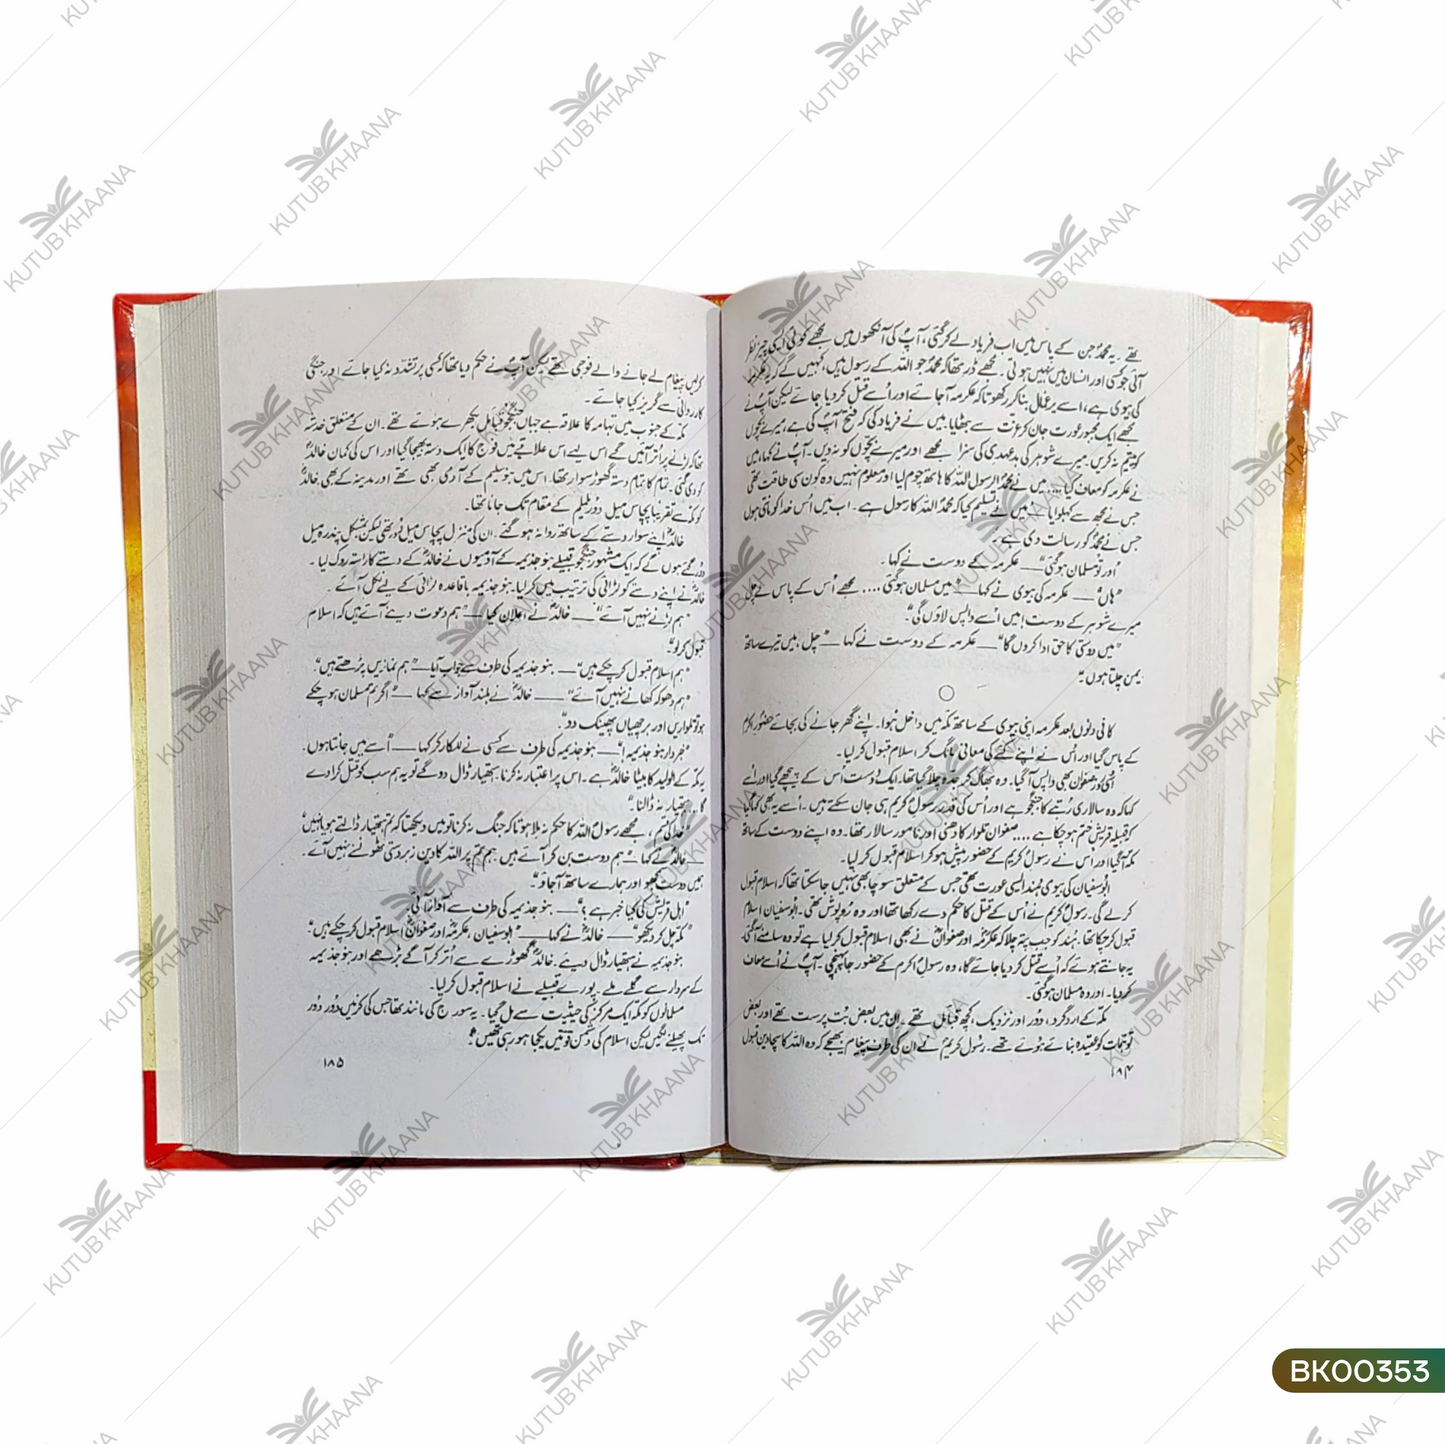 تھے۔ یہ محمدؐ جن کے پاس میں اب فریاد لے کر گئی، آپؐ کی آنکھوں میں مجھے کوئی ایسی چیز نظر
آئی جو کسی اور انسان میں نہیں ہوتی۔ مجھے ڈر تھا کہ محمدؐ جو اللہ کے رسول ہیں، کہیں گے کہ یہ عکرمہ
کی بیوی ہے، اسے یرغمال بنا کر رکھو تاکہ عکرمہ آجائے اور اُسے قتل کر دیا جائے لیکن آپؐ نے
مجھے ایک مجبور عورت جان کر عزت سے بٹھایا۔ میں نے فریاد کی کہ فتح آپ کی ہے، میرے بچوں
کو یتیم نہ کریں۔ میرے شوہر کی بدعہدی کی سزا مجھے اور میرے بچوں کو نہ دیں۔ آپؐ نے کہا، میں
نے عکرمہ کو معاف کیا.... میں نے محمدؐ الرسول اللہ کا ہاتھ چوم لیا اور معلوم نہیں وہ کون سی طاقت تھی
جس نے مجھ سے کہلوایا — میں نے تسلیم کیا کہ محمدؐ اللہ کا رسول ہے۔ اب میں اُس خدا کو مانتی ہوں
جس نے محمدؐ کو رسالت دی ہے۔"
"اور تو مسلمان ہو گئی" — عکرمہ کے دوست نے کہا۔
"ہاں" — عکرمہ کی بیوی نے کہا — "میں مسلمان ہو گئی.... مجھے اُس کے پاس لے چل
میرے شوہر کے دوست! میں اُسے واپس لاؤں گی"۔
"میں دوستی کا حق ادا کروں گا" — عکرمہ کے دوست نے کہا — "چل، میں تیرے ساتھ
یمن چلتا ہوں"۔
○
کافی دنوں بعد عکرمہ اپنی بیوی کے ساتھ مکہ میں داخل ہُوا۔ اپنے گھر جانے کی بجائے حضورِ اکرم
کے پاس گیا اور اُس نے اپنے کئے کی معافی مانگ کر اسلام قبول کر لیا۔
صفوان بھی واپس آگیا۔ وہ بھاگ کر جدہ چلا گیا تھا۔ ایک دوست اس کے پیچھے گیا اور اُسے
کہا کہ وہ سالاری رُتبے کا جنگجو ہے اور اُس کی قدر رسولِ کریمؐ ہی جان سکتے ہیں۔ اُسے یہ بھی کہا گیا
کہ قبیلہ قریش ختم ہو چکا ہے.... صفوان تلوار کا دھنی اور نامور سالار تھا۔ وہ اپنے دوست کے ساتھ
مکہ آگیا اور اس نے رسولِ کریمؐ کے حضور پیش ہو کر اسلام قبول کر لیا۔
ابوسفیان کی بیوی ہند ایسی عورت تھی جس کے متعلق سوچا بھی نہیں جا سکتا تھا کہ اسلام قبول
کر لے گی۔ رسولِ کریمؐ نے اُس کے قتل کا حکم دے رکھا تھا اور وہ روپوش تھی۔ ابوسفیان اسلام
قبول کر چکا تھا۔ ہند کو جب پتہ چلا کہ عکرمہؓ اور صفوانؓ نے بھی اسلام قبول کر لیا ہے تو وہ سامنے آگئی۔
یہ جانتے ہوئے کہ اُسے قتل کر دیا جائے گا، وہ رسولِ اکرم کے حضور جا پہنچی۔ آپؐ نے اُسے معاف
کر دیا۔ اور وہ مسلمان ہو گئی۔
مکہ کے ارد گرد، دُور اور نزدیک، کچھ قبائل تھے۔ ان میں بعض بُت پرست تھے اور بعض
توہمات کو عقیدہ بنائے ہوئے تھے۔ رسولِ کریمؐ نے ان کی طرف پیغام بھیجے کہ وہ اللہ کا سچا دین قبول
۱۸۴
کر لیں۔ پیغام لے جانے والے فوجی تھے لیکن آپؐ نے حکم دیا تھا کہ کسی پر تشدد نہ کیا جائے اور جنگی
کارروائی سے گریز کیا جائے۔
مکہ کے جنوب میں تہامہ کا علاقہ ہے جہاں جنگجو قبائل بکھرے ہوئے تھے۔ ان کے متعلق خدشہ
تھا کہ لڑنے پر اُتر آئیں گے اس لیے اس علاقے میں فوج کا ایک دستہ بھیجا گیا اور اس کی کمان خالدؓ
کو دی گئی۔ تمام کا تمام دستہ گھوڑ سوار تھا۔ اس میں بنو سلیم کے آدمی بھی تھے اور مدینہ کے بھی۔ خالدؓ
کو مکہ سے تقریباً پچاس میل دُور یلملم کے مقام تک جانا تھا۔
خالدؓ اپنے سوار دستے کے ساتھ روانہ ہو گئے۔ ان کی منزل پچاس میل دُور تھی لیکن بمشکل پندرہ میل
دُور گئے ہوں گے کہ ایک مشہور جنگجو قبیلے بنو جذیمہ کے آدمیوں نے خالدؓ کے دستے کا راستہ روک لیا۔
خالدؓ نے اپنے دستے کو لڑائی کی ترتیب میں کر لیا۔ بنو جذیمہ باقاعدہ لڑائی کے لیے نکل آئے۔
"ہم لڑنے نہیں آئے" — خالدؓ نے اعلان کیا — "ہم دعوت دینے آئے ہیں کہ اسلام
قبول کر لو"۔
"ہم اسلام قبول کر چکے ہیں" — بنو جذیمہ کی طرف سے جواب آیا — "ہم نمازیں پڑھتے ہیں"۔
"ہم دھوکہ کھانے نہیں آئے" — خالدؓ نے بلند آواز سے کہا — "اگر تم مسلمان ہو چکے
ہو تو تلواریں اور برچھیاں پھینک دو"۔
"خبردار بنو جذیمہ!" — بنو جذیمہ کی طرف سے کسی نے للکار کر کہا — "اُسے میں جانتا ہوں۔
یہ مکہ کے الولید کا بیٹا خالد ہے۔ اس پر اعتبار نہ کرنا۔ ہتھیار ڈال دو گے تو یہ ہم سب کو قتل کرا دے
گا.... ہتھیار نہ ڈالنا"۔
"خدا کی قسم، مجھے رسول اللہ کا حکم نہ ملا ہوتا کہ جنگ نہ کرنا تو میں دیکھتا کہ تم ہتھیار ڈالتے ہو یا نہیں"
— خالدؓ نے کہا — "ہم دوست بن کر آئے ہیں۔ ہم تم پر اللہ کا دین زبردستی ٹھونسنے نہیں آئے۔
ہمیں دوست سمجھو اور ہمارے ساتھ آجاؤ"۔
"اہلِ قریش کی کیا خبر ہے؟" — بنو جذیمہ کی طرف سے آواز آئی۔
"مکہ چل کر دیکھو" — خالدؓ نے کہا — "ابوسفیان، عکرمہؓ اور صفوانؓ اسلام قبول کر چکے ہیں"۔
بنو جذیمہ نے ہتھیار ڈال دیئے۔ خالدؓ گھوڑے سے اُتر کر آگے بڑھے اور بنو جذیمہ
کے سردار سے گلے ملے۔ پورے قبیلے نے اسلام قبول کر لیا۔
مسلمانوں کو مکہ ایک مرکز کی حیثیت سے مل گیا۔ یہ سورج کی مانند تھا جس کی کرنیں دُور دُور
تک پھیلنے لگیں لیکن اسلام کی دشمن قوتیں یکجا ہو رہی تھیں۔
۱۸۵
KUTUB KHAANA
BK00353